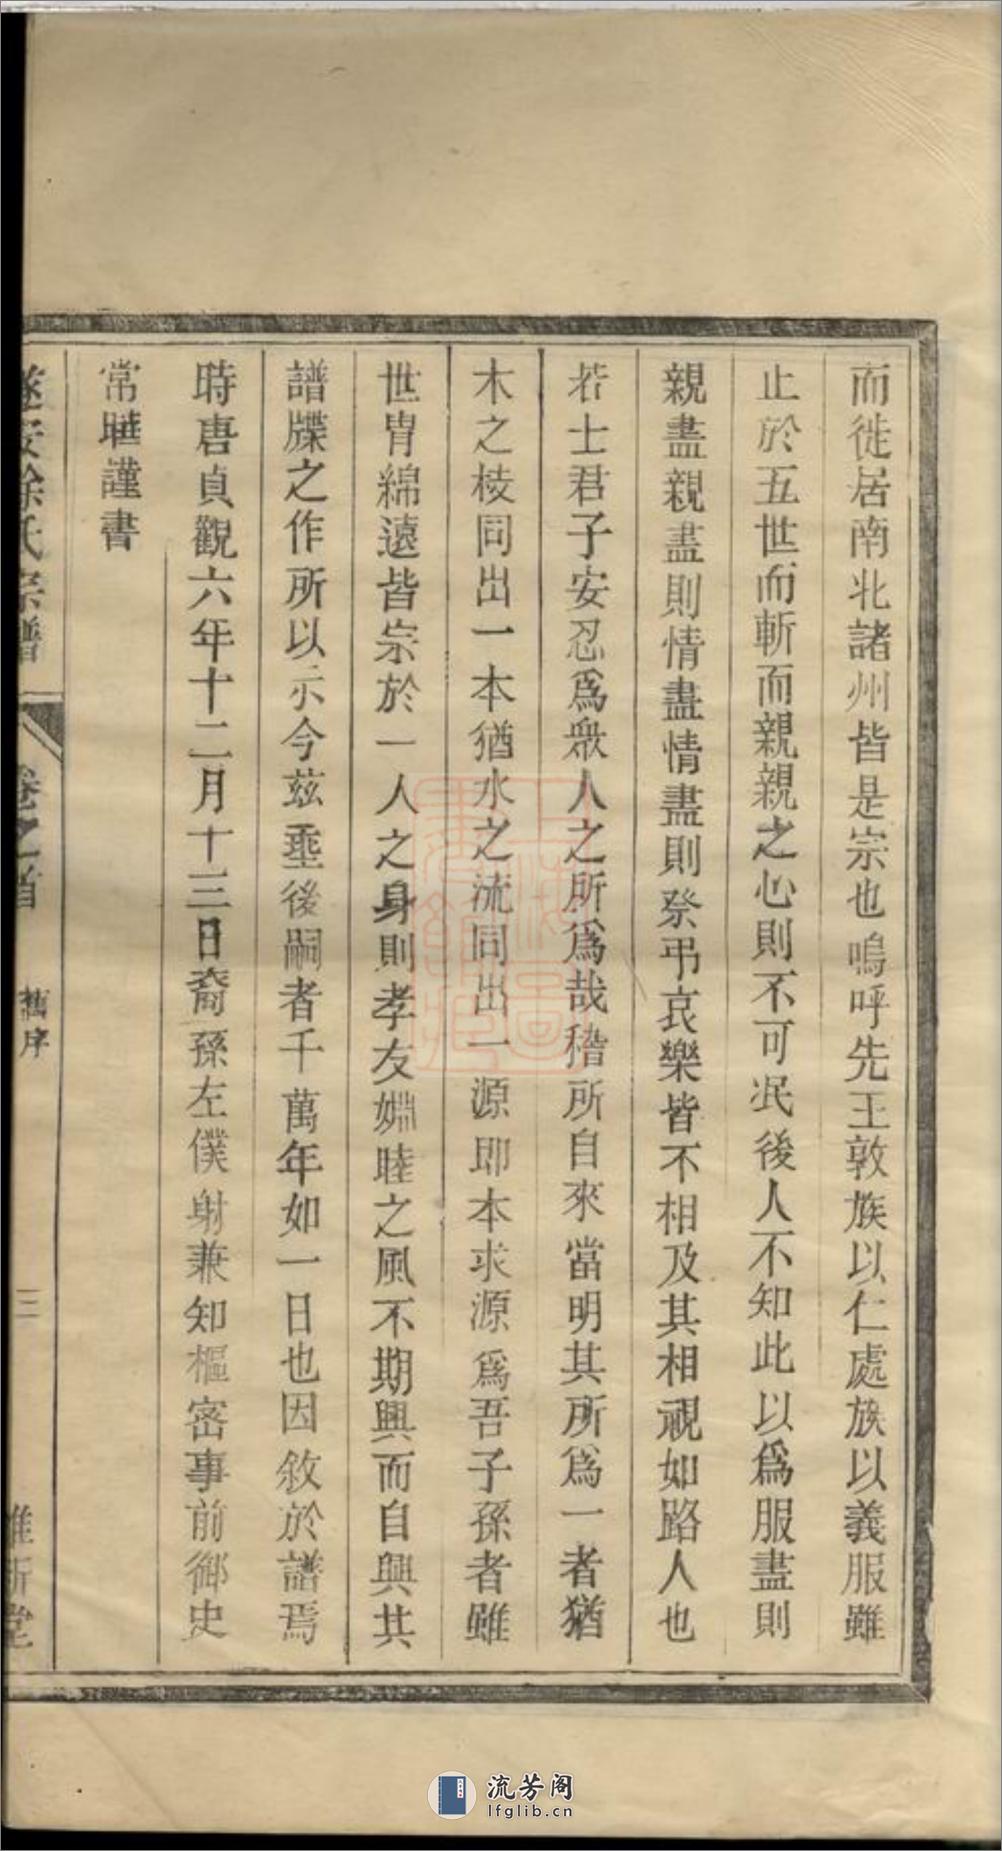 而徙居南北諸州皆是宗也嗚呼先王敦族以仁處族以義服雖
止於五世而斬而親親之心則不可泯後人不知此以爲服盡則
親盡親盡則情盡情盡則祭弔哀樂皆不相及其相視如路人也
若士君子安忍爲衆人之所爲哉稽所自來當明其所爲一者猶
木之枝同出一本猶水之流同出一源即本求源爲吾子孫者雖
世胄綿遠皆宗於一人之身則孝友婣睦之風不期興而自興其
譜牒之作所以示今茲垂後嗣者千萬年如一日也因敘於譜焉
時唐貞觀六年十二月十三日裔孫左僕射兼知樞密事前御史
常曄謹書
遂安徐氏宗譜 卷之首 舊序 三 維新堂
流芳阁
lfglib.cn